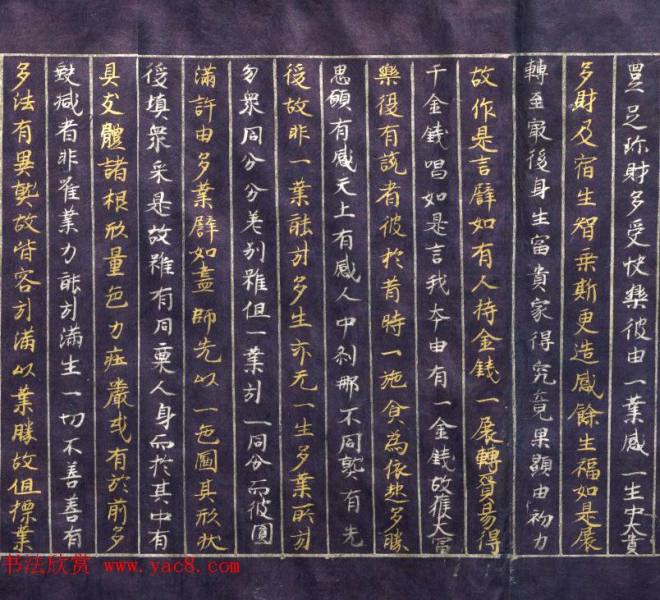 異足珎財多受快樂彼由一業感一生中大貴
多財及宿生智乘斯更造感餘生福如是展
轉至㝡後身生富貴家得究竟果顯由初力
故作是言譬如有人持金錢一展轉貿易得
千金錢唱如是言我本由有一金錢故獲大富
樂復有說者彼於昔時一施食為依起多勝
思願有感天上有感人中刹那不同熟有先
後故非一業能引多生亦无一生多業所引
勿眾同分分差別雖但一業引一同分而彼圓
滿許由多業譬如畫師先以一色圖其形狀
後填眾采是故雖有同稟人身而於其中有
具支體諸根形量色力莊嚴或有於前多
缺減者非唯業力能引滿生一切不善善有
多法有異熟故皆容引滿以業勝故但標業
书法欣赏 www.yac8.com